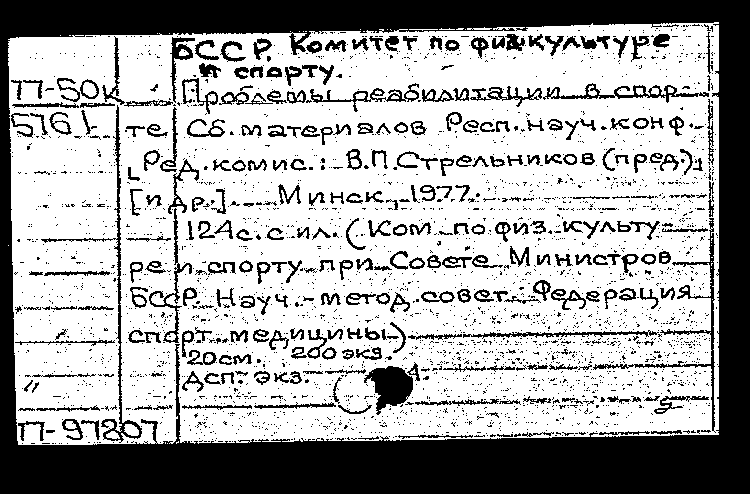 БССР. Комитет по физкультуре
и спорту.
П-50к Проблемы реабилитации в спор-
5761 те. Сб. материалов Респ. науч. конф.
[Ред. комис.: В.П. Стрельников (пред.)
[и др.]. Минск, 1977.
124с. с ил. (Ком. по физ. культу-
ре и спорту при Совете Министров
БССР. Науч.-метод. совет. Федерация
спорт. медицины)
20см. 200 экз.
Дсп. экз.
П-97807